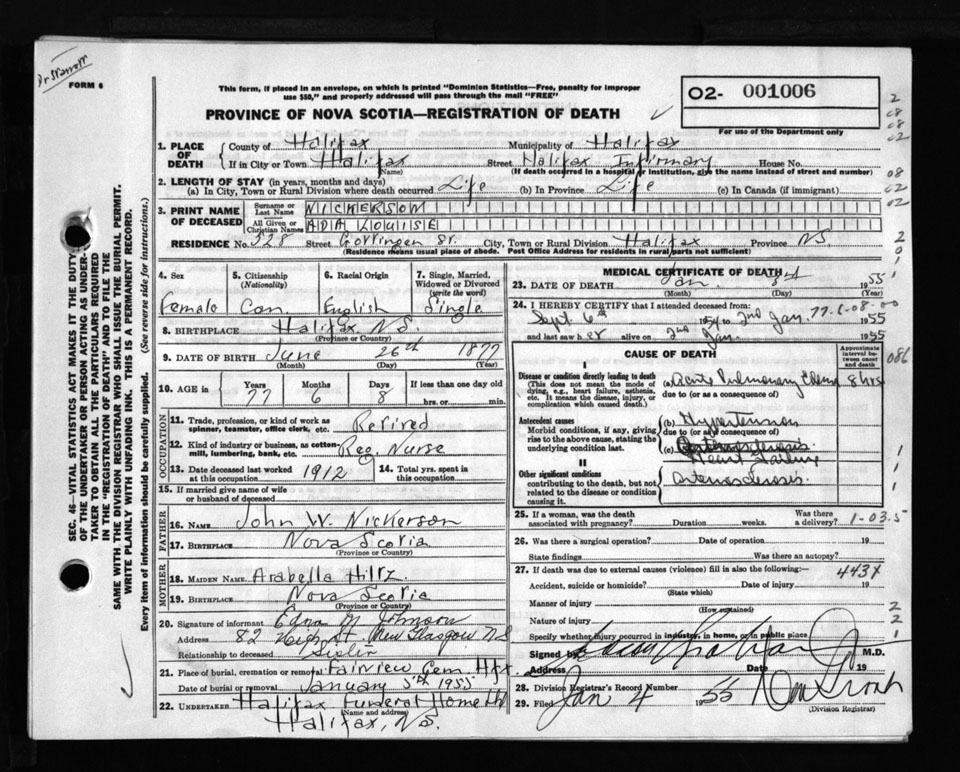 FORM 6
This form, if placed in an envelope, on which is printed "Dominion Statistics—Free, penalty for improper
use $50," and properly addressed will pass through the mail "FREE"
PROVINCE OF NOVA SCOTIA—REGISTRATION OF DEATH
02- 001006
For use of the Department only
SEC. 46 VITAL STATISTICS ACT MAKES IT THE DUTY
OF THE UNDERTAKER OR PERSON ACTING AS UNDER-
TAKER TO OBTAIN ALL THE PARTICULARS REQUIRED
IN THE "REGISTRATION OF DEATH" AND TO FILE THE
SAME WITH THE DIVISION REGISTRAR WHO SHALL ISSUE THE BURIAL PERMIT.
WRITE PLAINLY WITH UNFADING INK. THIS IS A PERMANENT RECORD.
Every item of information should be carefully supplied. (See reverse side for instructions.)
1. PLACE OF DEATH County of Halifax Municipality of Halifax
If in City or Town Halifax Street Halifax Infirmary House No.
(Name) (If death occurred in a hospital or institution, give the name instead of street and number)
2. LENGTH OF STAY (in years, months and days)
(a) In City, Town or Rural Division where death occurred Life (b) In Province Life (c) In Canada (if immigrant)
3. PRINT NAME OF DECEASED Surname or Last Name NICKERSON
All Given or Christian Names ADA LOUISE
RESIDENCE No. 328 Street Gottingen St. City, Town or Rural Division Halifax Province NS
(Residence means usual place of abode. Post Office Address for residents in rural parts not sufficient)
4. Sex 5. Citizenship (Nationality) 6. Racial Origin 7. Single, Married, Widowed or Divorced (write the word)
Female Can. English Single
8. BIRTHPLACE Halifax, N.S.
(Province or Country)
9. DATE OF BIRTH June 26th 1877
(Month) (Day) (Year)
10. AGE in Years Months Days If less than one day
77 6 8 hrs. or min.
OCCUPATION
11. Trade, profession, or kind of work as spinner, teamster, office clerk, etc. Retired
12. Kind of industry or business, as cotton-mill, lumbering, bank, etc. Reg. Nurse
13. Date deceased last worked at this occupation 1912 14. Total yrs. spent in this occupation
15. If married give name of wife or husband of deceased
FATHER
16. NAME John W. Nickerson
17. BIRTHPLACE Nova Scotia
(Province or Country)
MOTHER
18. MAIDEN NAME Arabella Hiltz
19. BIRTHPLACE Nova Scotia
(Province or Country)
20. Signature of informant Edna M Johnson
Address 82 New Glasgow N.S.
Relationship to deceased Sister
21. Place of burial, cremation or removal Fairview Cem. Hfx.
Date of burial or removal January 5th 1955
22. UNDERTAKER Halifax Funeral Home Ltd
(Name and address)
Halifax, N.S.
MEDICAL CERTIFICATE OF DEATH
23. DATE OF DEATH Jan. 3 1955
(Month) (Day) (Year)
24. I HEREBY CERTIFY that I attended deceased from:
Sept. 6th 1954 to 2nd Jan. 1955
77-6-08-00
and last saw her alive on 2nd Jan. 1955
CAUSE OF DEATH Approximate interval between onset and death
086
I
Disease or condition directly leading to death (a) Acute Pulmonary Edema 8 hrs
(This does not mean the mode of dying, e.g., heart failure, asthenia, etc. It means the disease, injury, or complication which caused death.) due to (or as a consequence of)
Antecedent causes (b) Hypertension
Morbid conditions, if any, giving rise to the above cause, stating the underlying condition last. due to (or as a consequence of)
(c) Arteriosclerosis.
Heart Failure
II
Other significant conditions Arteriosclerosis.
contributing to the death, but not related to the disease or condition causing it.
25. If a woman, was the death associated with pregnancy? Duration weeks. Was there a delivery? 1-03.5
26. Was there a surgical operation? Date of operation 19
State findings Was there an autopsy?
27. If death was due to external causes (violence) fill in also the following: 443X
Accident, suicide or homicide? Date of injury 19
(State which)
Manner of injury
(How sustained)
Nature of injury
Specify whether injury occurred in industry, in home, or in public place
Signed by M.D.
Address Date 19
28. Division Registrar's Record Number
29. Filed Jan 4 1955
(Division Registrar)